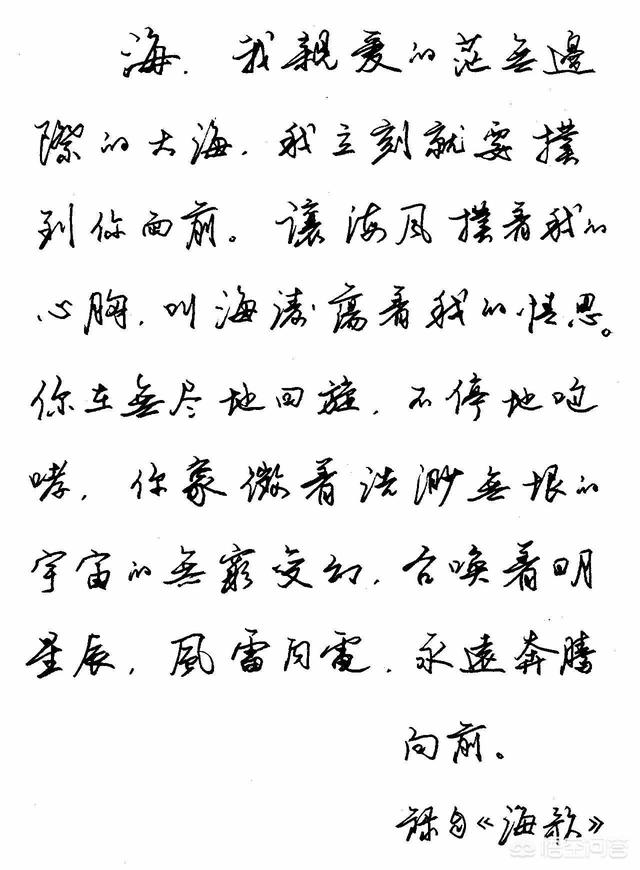 海，我親爱的茫無邊
際的大海，我立刻就要撲
到你面前。讓海风撲着我的
心胸，叫海濤蕩着我的情思。
你在無尽地回旋，不停地咆
哮，你象徵着浩渺無垠的
宇宙的無窮变幻，召唤着明
星辰，風雷闪電，永遠奔騰
向前。
録自《海歌》
悟空问答